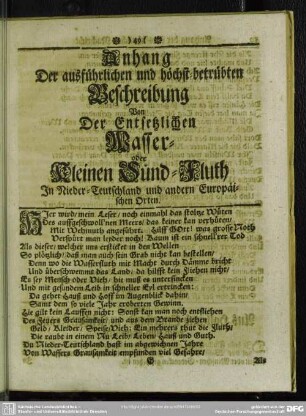 ) 49 (
Anhang
Der ausführlichen und höchst betrübten
Beschreibung
Von
Der Entsetzlichen
Wasser-
oder
Kleinen Sünd-Fluth
In Nieder-Teutschland und andern Europäi-
schen Orten.
HIer wird mein Leser/ noch einmahl das stoltze Wüten
Des auffgeschwoll'nen Meers/ das keiner kan verhüten/
Mit Wehmuth angeführt. Hilff GOtt! was grosse Noth
Verspürt man leyder noch! Kaum ist ein schneller Tod
Als dieser/ welcher uns ersticket in den Wellen
So plötzlich/ daß man auch sein Grab nicht kan bestellen/
Denn wo die Wassersfluth mit Macht durch Dämme bricht
Und überschwemmt das Land/ da hilfft kein Ziehen nicht/
Es sey Mensch oder Vieh/ die muß es unterfincken
Und mit geschwindem Leid in schnellen Eyl ertrincken:
Da gehet Hauß und Hoff im Augenblick dahin/
Samt dem so viele Jahr eroberten Gewinn.
Hie gilt kein Lauffen nicht: Sonst kan man noch entfliehen
Des Feuers Grausamkeit/ und aus dem Brande ziehen
Geld/ Kleider/ Speise/ Vieh; Ein mehrers thut die Fluth/
Die raubt in einem Nu Leib/ Leben/ Hauß und Guth.
Du Nieder-Teutschland hast im abgewichnen Jahre
Von Wassers Grausamkeit empfunden viel Gefahre/
G
Als